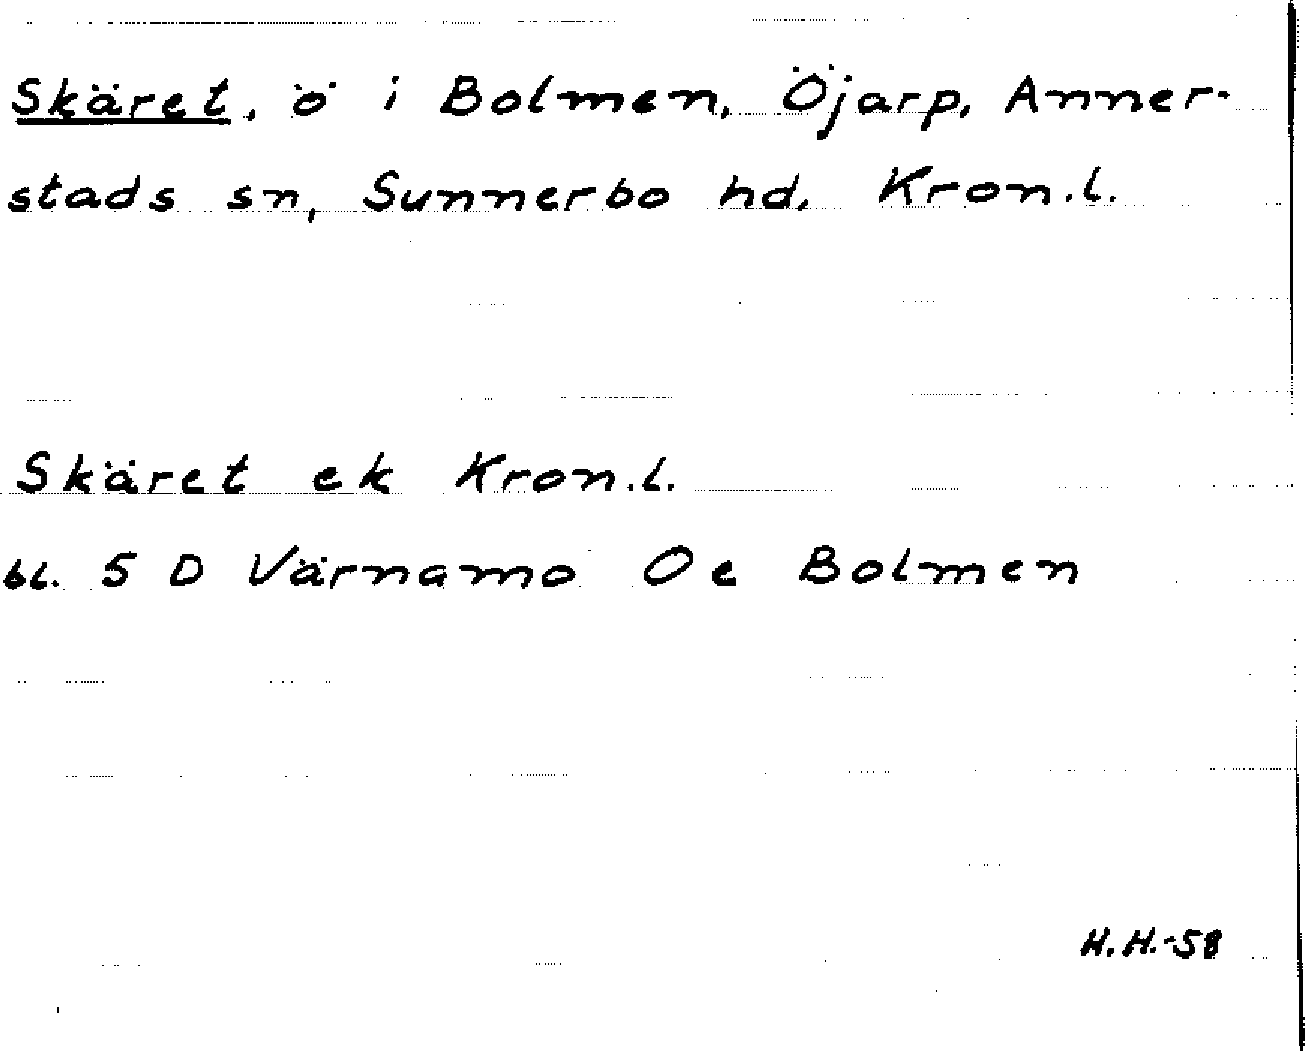 Skäret, ö i Bolmen, Öjarp, Anner-
stads sn, Sunnerbo hd, Kron.l.
Skäret ek Kron.l.
bl. 5 D Värnamo Oe Bolmen
H.H.-58